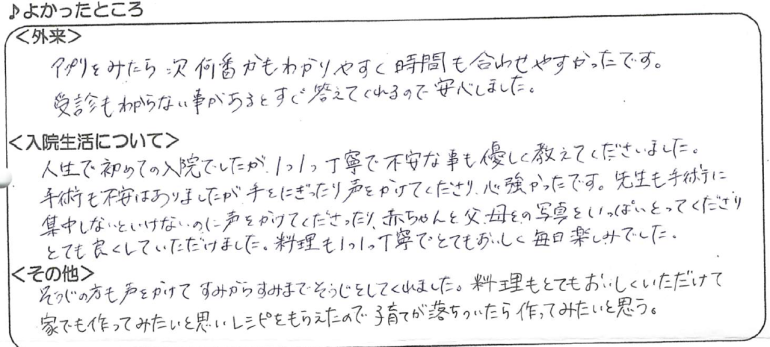 ♪よかったところ
<外来>
アプリをみたら次何番かもわかりやすく時間も合わせやすかったです。
受診もわからない事があるとすぐ答えてくれるので安心しました。
<入院生活について>
人生で初めての入院でしたが、1つ1つ丁寧で不安な事も優しく教えてくださいました。
手術も不安はありましたが手をにぎったり声をかけてくださり、心強かったです。先生も手術に
集中しないといけないのに声をかけてくださったり、赤ちゃんと父、母との写真をいっぱいとってくださり
とても良くしていただけました。料理も1つ1つ丁寧でとてもおいしく毎日楽しみでした。
<その他>
そうじの方も声をかけてすみからすみまでそうじをしてくれました。料理もとてもおいしくいただけて
家でも作ってみたいと思いレシピをもらえたので子育てが落ちついたら作ってみたいと思う。